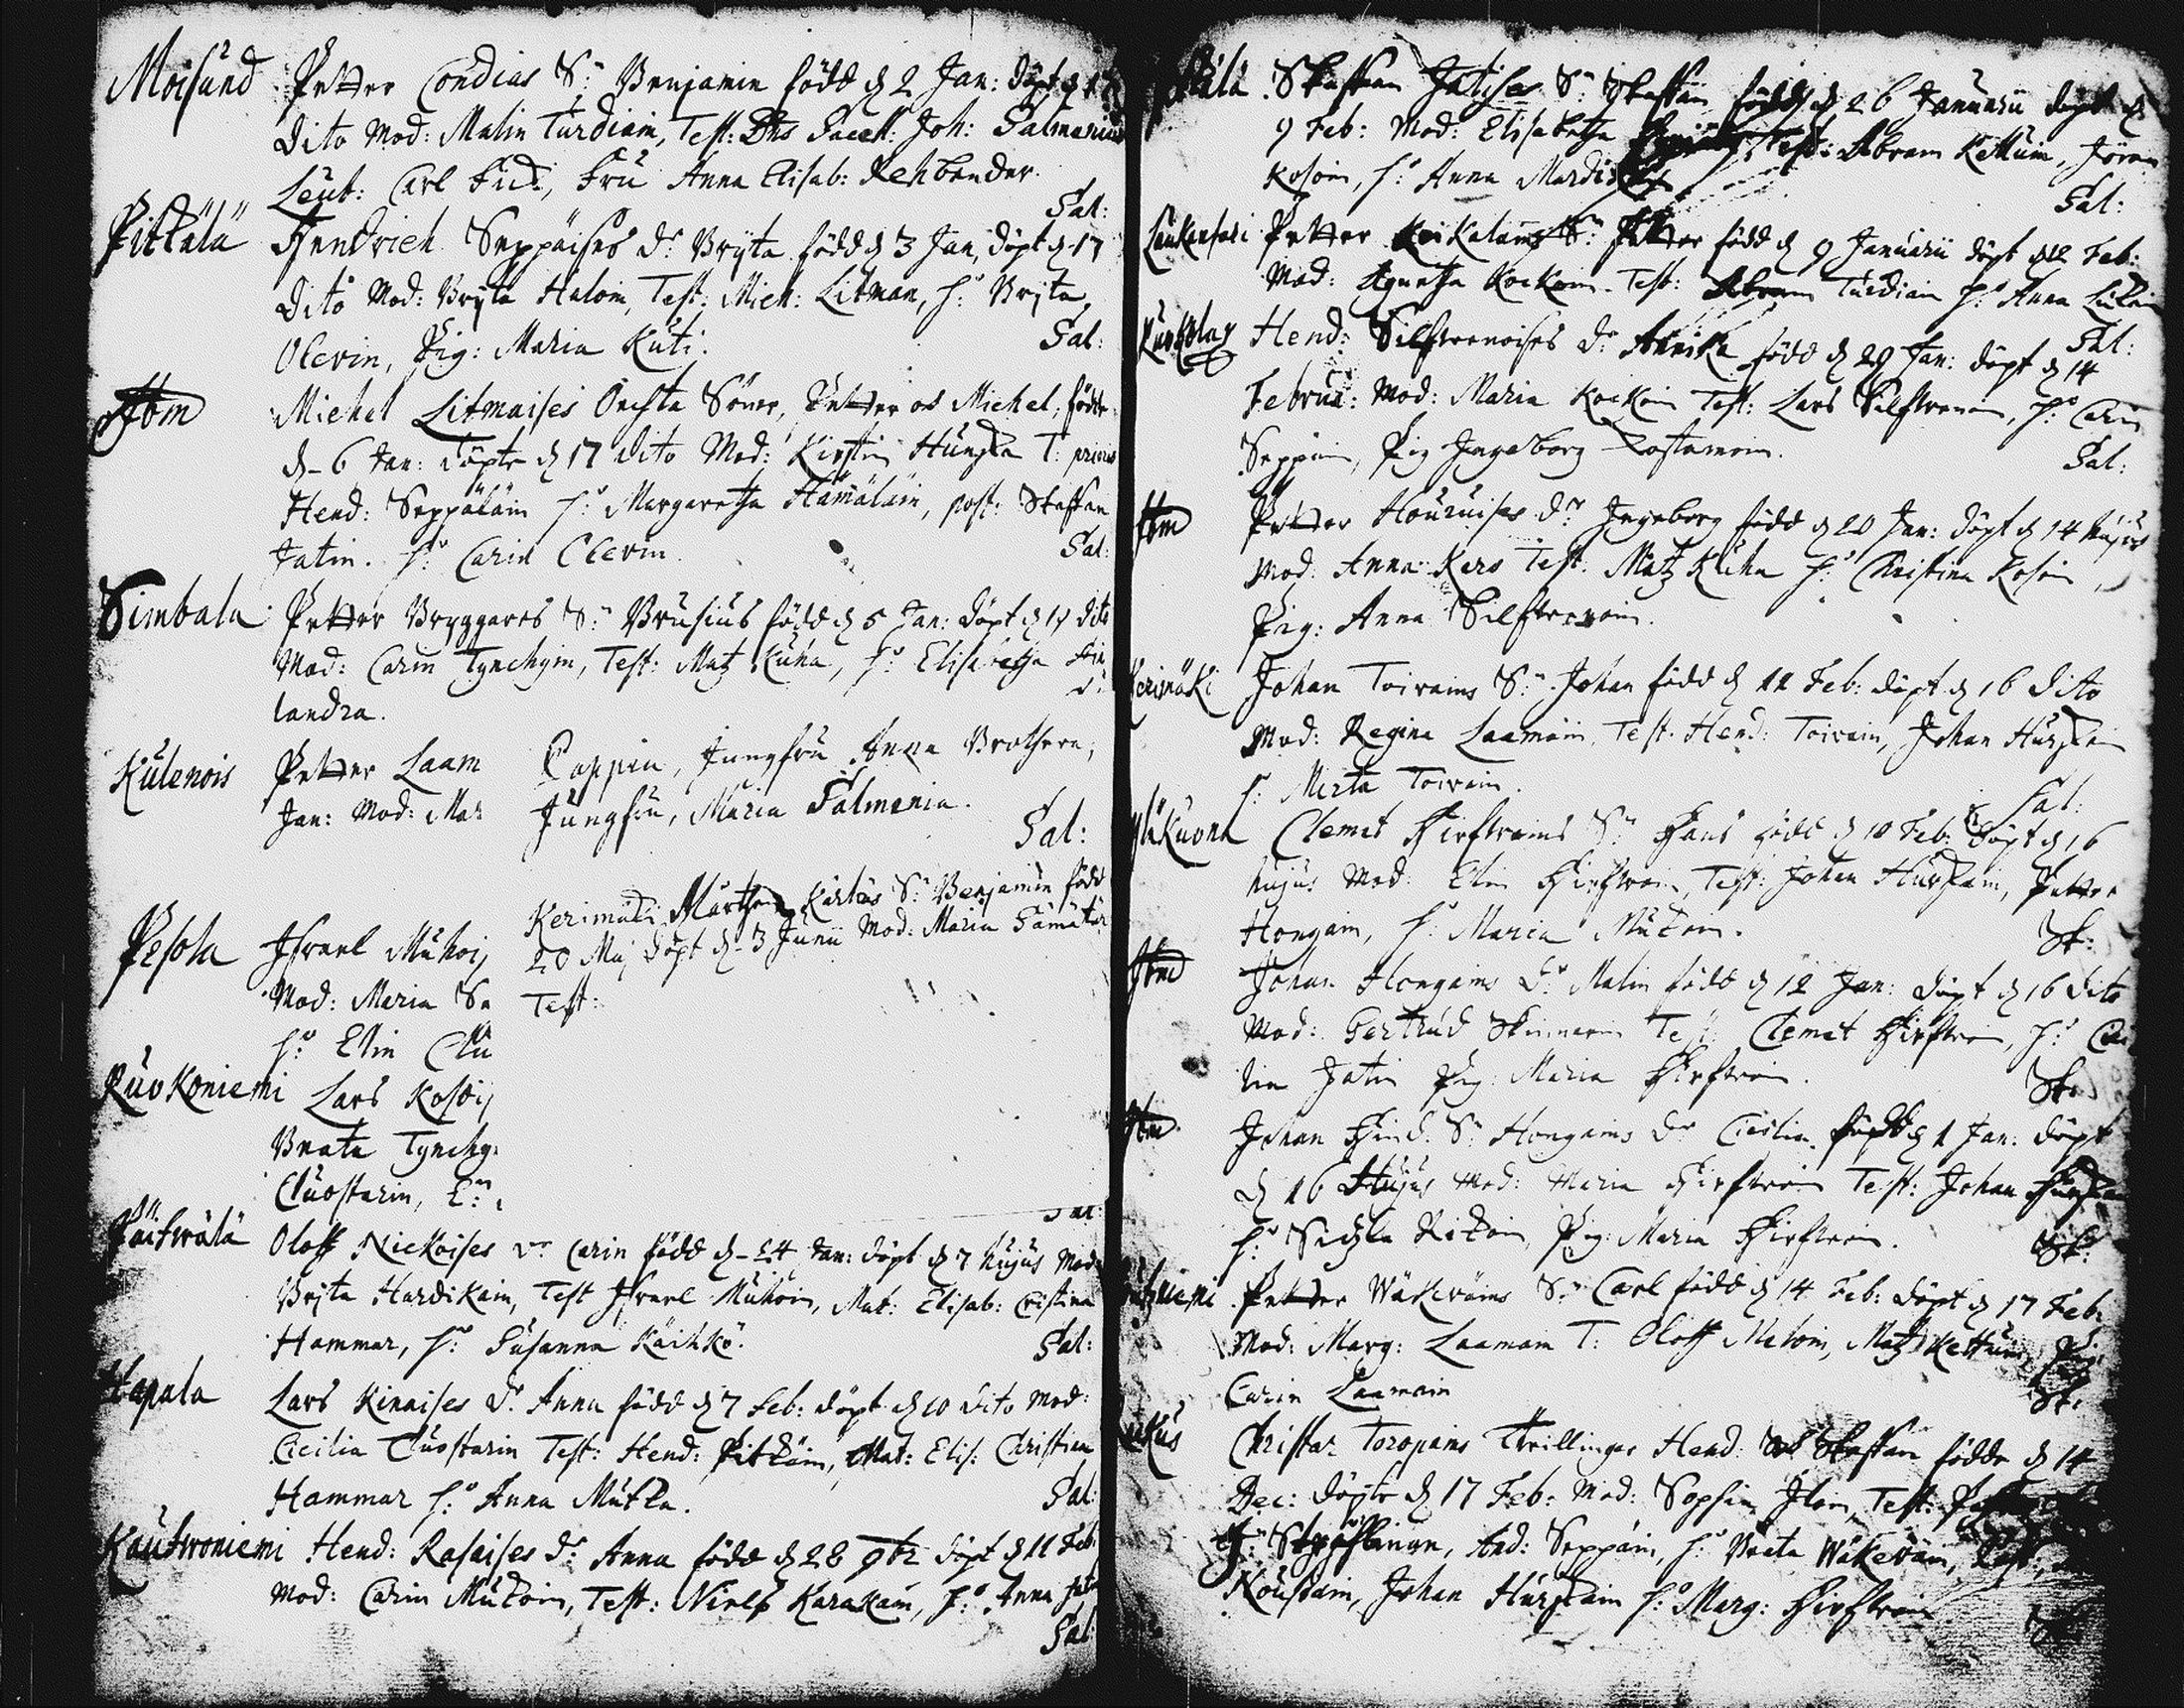 Moisund Petter Condias S:n Benjamin född d 2 Jan: döpt d 17
Dito Mod: Malin Turdiain, Test: Dns Sacell: Joh: Salmenius
Leut: Carl Fudi, Fru Anna Elisab: Rehbender.
Sal:
Pitkälä Hendrich Seppäises dr Bryta född d 3 Jan, döpt d 17
Dito Mod: Bryta Haloin, Test: Mich: Litman, h:o Bryta
Olevin, Pig: Maria Kuti.
Sal:
Ibm Michel Litmaises Öechta Söner, Petter os Michel, födde
d 6 Jan: döpte d 17 dito Mod: Kirstin Hungla T: prioris
Hend: Seppäläin h:o Margaretha Hämäläin, post: Staffan
Jatin. h:o Carin Clevin
Sal:
Simbala Petter Bryggares S:n Brusius född d 5 Jan: döpt d 17 dito
Mod: Carin Tynchyin, Test: Matz Kuha, h:o Elisabetha
landra.
Kulenois Petter Laam Cappen, Jungfru Anna Brothera,
Jan: Mod: Mar Jungfru, Maria Salmenia.
Sal:
Kerimäki Mårthen Karhus S:n Benjamin född
Pesola Israel Muhoi 20 Maj döpt d 3 Junii Mod: Maria Sämätär
Mod: Maria Sa Test:
h:o Elin Clu
Ruokoniemi Lars Kosoi
Beata Tynchy
Cluostarin, E:n
Sal:
Päiwälä Oloff Nickoises dr Carin född d 24 Jan: döpt d 7 hujus Mod:
Bryta Hardikain, Test Israel Muhoin, Mat: Elisab: Cristina
Hammar, h:o Susanna Käihkö.
Sal:
Hapala Lars Kinaises dr Anna född d 7 Feb: döpt d 10 dito Mod:
Cicilia Cluostarin Test: Hend: Pitkäin, Mat: Elis: Christina
Hammar h:o Anna Mutka.
Sal:
Kautoniemi Hend: Rasaises dr Anna född d 28 9br döpt d 11 Feb:
Mod: Carin Mutoin, Test: Niels Karakain, h:o Anna
Sal:
Staffan Jatises S:n Staffan född d 26 Januarii döpt d
9 Feb: Mod: Elisabetha Test: Abram Kettuin, Jöran
Kosoin, h:o Anna
Sal:
Laukansari Petter Keikalains S:n Petter född d 9 Januarii döpt d 12 Feb:
Mod: Agnetha Kockoin. Test: Abram Turdiain h:o Anna
Sal:
Hend: Silfwenoises dr Annika född d 29 Jan: döpt d 14
Februa: Mod: Maria Kockoin Test: Lars Silfwenoin, h:o Carin
Seppäin, Pig Ingeborg Loftamoin.
Sal:
Ibm Petter Houruises dr Ingeborg född d 20 Jan: döpt d 14 hujus
Mod: Anna Kers Test: Matz Kuha h:o Christina Kosoin,
Pig: Anna Silfwenoin.
Kerimäki Johan Toivains S:n Johan född d 11 Feb: döpt d 16 dito
Mod: Regina Laamain, Test: Hend: Toivain, Johan Hurskain
h: Merta Toivain.
Sal:
Yläkuona Clemet Hirfwoins S:n Hans född d 10 Feb: döpt d 16
hujus Mod: Elin Hirfwoin, Test: Johan Hurskain, Petter
Hongain, h:o Maria Mutoin.
Sk:
Ibm Johan Hongains dr Malin född d 12 Jan: döpt d 16 dito
Mod: Gertrud Skinnarin Test: Clemet Hirfwoin, h:o Ceci
lia Jatin Pig: Maria Hirfwoin.
Sk:
Ibm. Johan Hind: S:n Hongains dr Cicilia född d 1 Jan: döpt
d 16 Hujus Mod: Maria Hirfwoin Test: Johan Hurskain
h:o Sidzla Ritoin, Pig: Maria Hirfwoin.
Sk:
Petter Wäkeväins S:n Carl född d 14 Feb: döpt d 17 Feb:
Mod: Marg: Laamain T: Oloff Meloin, Matz Kettuin, Pig:
Carin Laamain
Sk:
Christar Toropains Thrillingar Hend: Staffan födde d 14
Dec: döpte d 17 Feb: Mod: Sophia Iloin, Test:
And: Seppäin, h:o Beata Wäkeväin,
Noustain, Johan Hurskain h:o Marg: Hirfwoin.